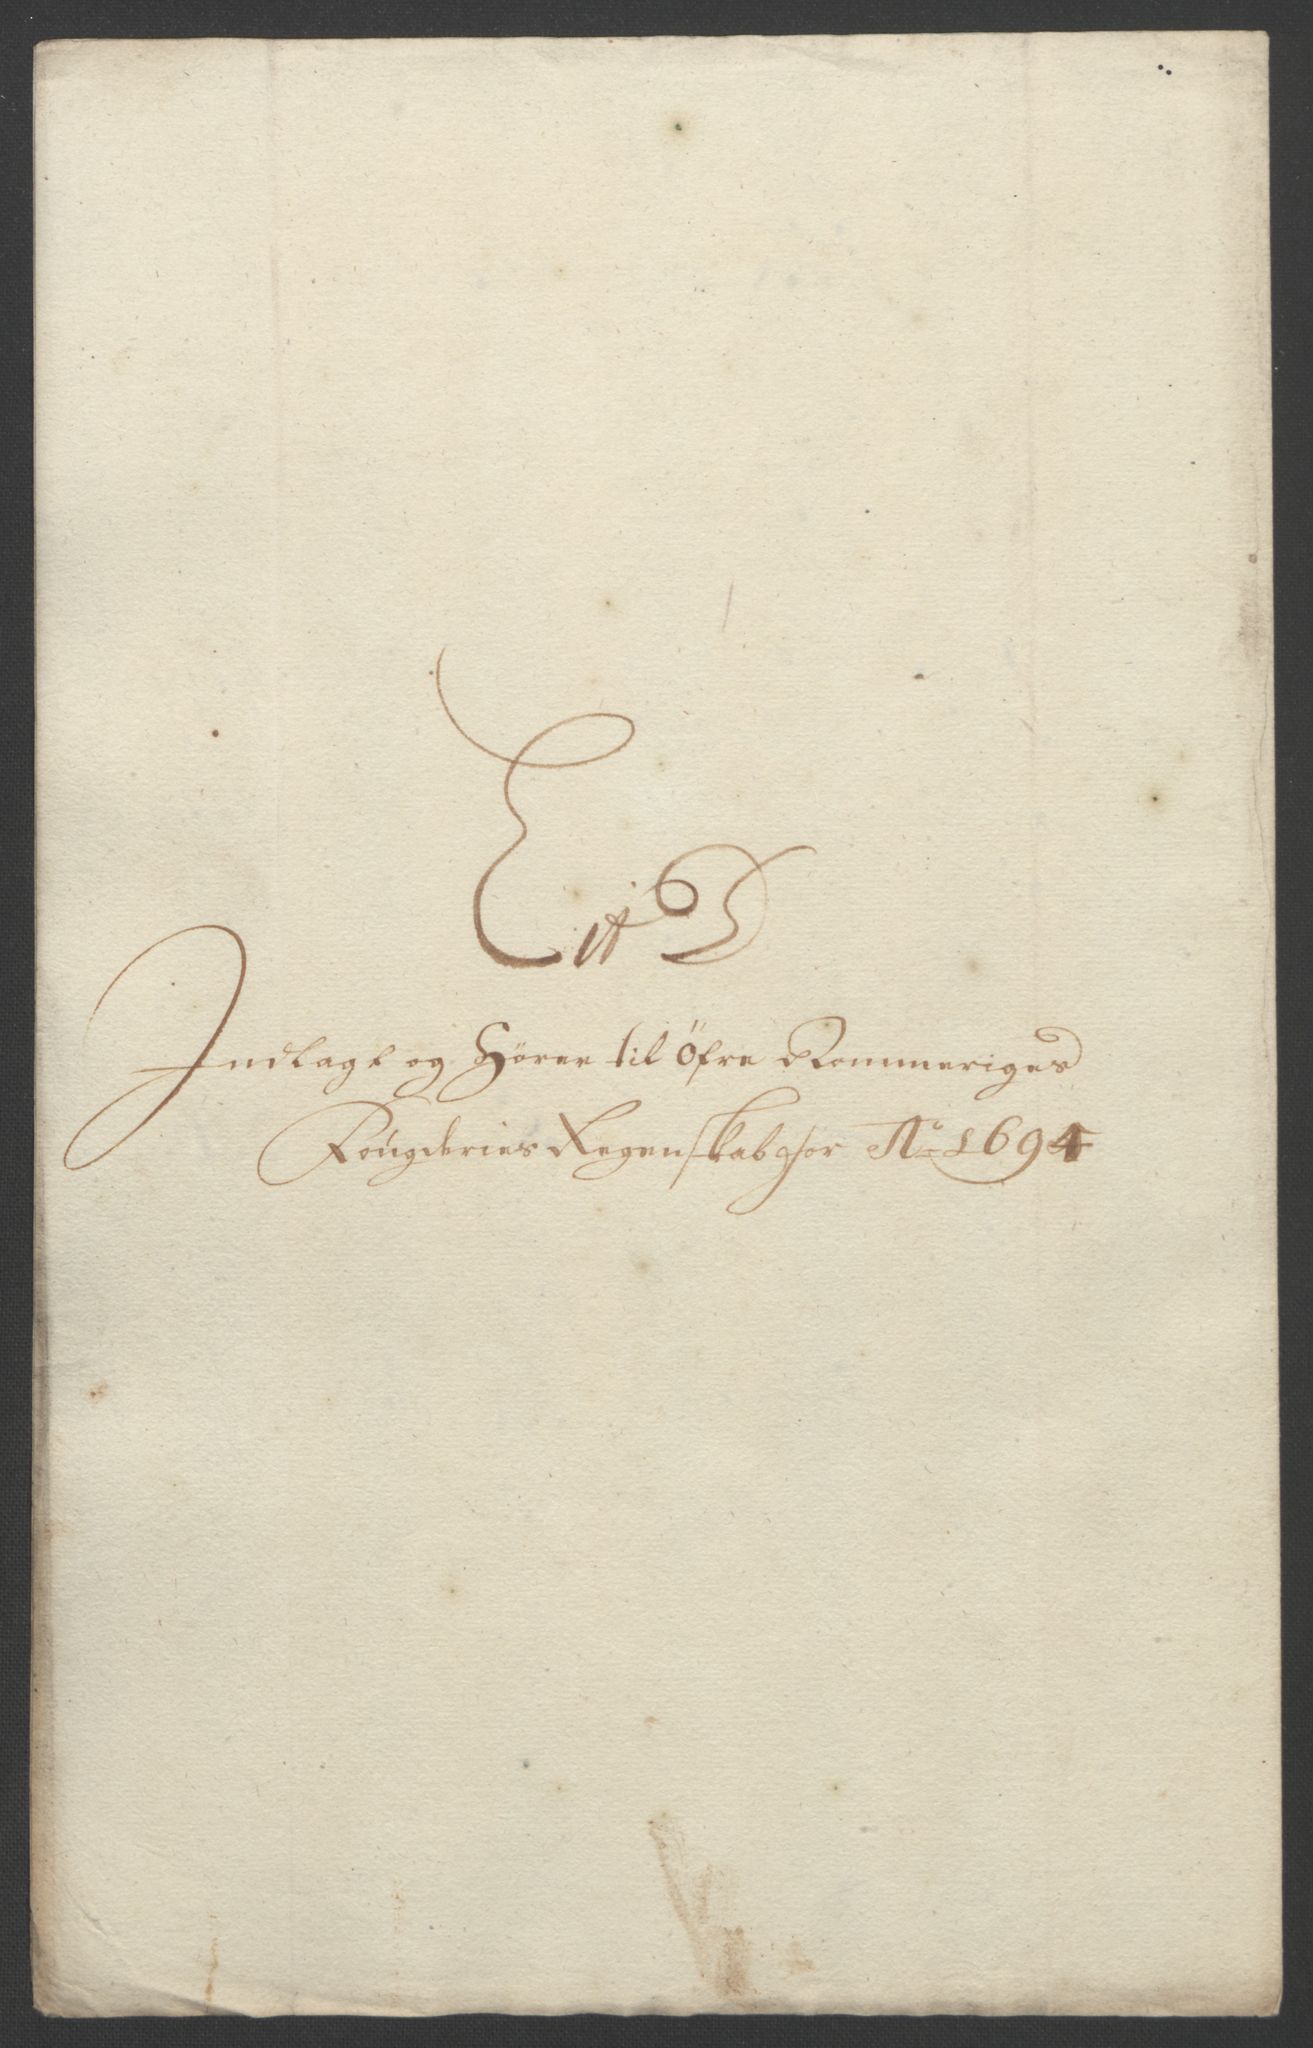 Lit D
Indlagt og Hører til Öfre Rommeriges
Fougderies Regenskab for Ao 1694